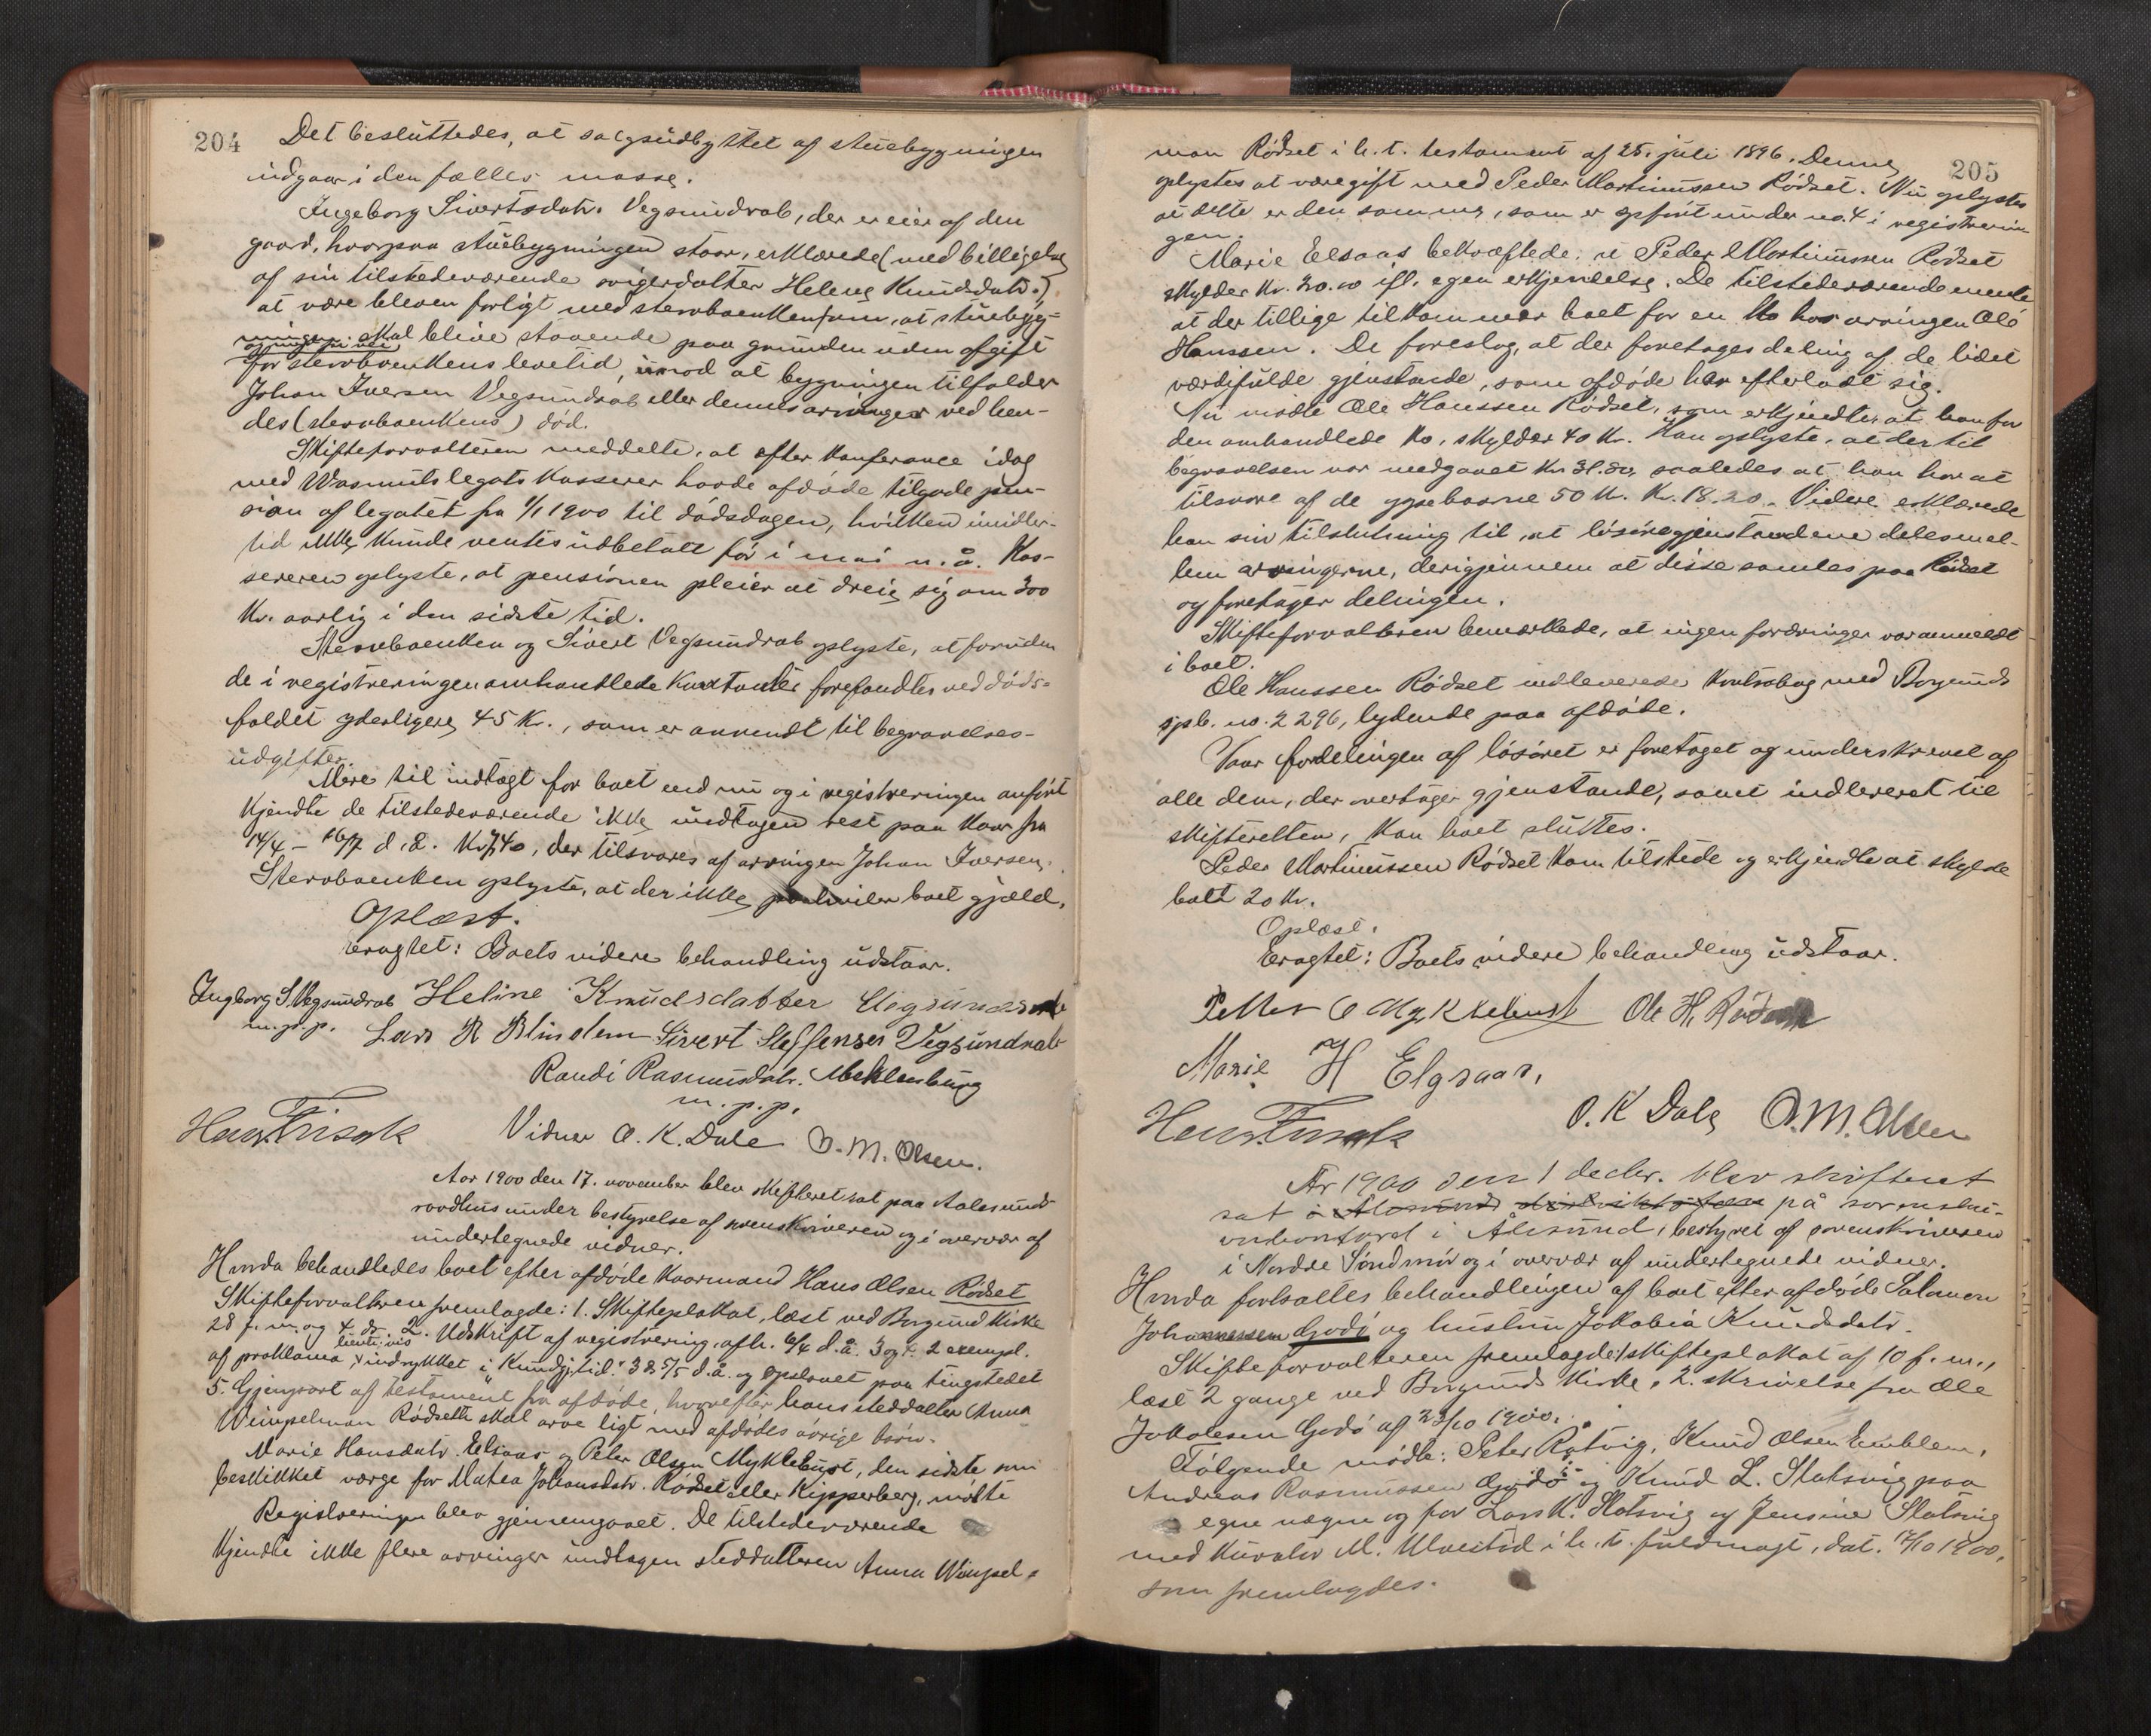 204
Det besluttedes, at salgsudbyttet af stuebygningen
indgaar i den fælles masse.
Ingeborg Sivertsdatr. Vegsundrab, der er eier af den
gaard, hvorpaa stuebygningen staar, erklærede (med billigelse
af sin tilstedeværende svigerdatter Helene Knudsdatr.),
at være bleven forligt med stervboenken om, at stuebyg-
ningen skal blive staaende paa grunden uden afgift
for stervboenkens levetid, imod at bygningen tilfalder
Johan Iversen Vegsundrab eller dennes arvinger ved hen-
des (stervboenkens) død.
Skifteforvalteren meddelte, at efter konferance idag
med Wasmuts legats kasserer havde afdøde tilgode pen-
sion af legatet fra 1/1 1900 til dødsdagen, hvilken imidler-
tid ikke kunde ventes udbetalt før i mai n. å. Kas-
sereren oplyste, at pensionen pleier at dreie sig om 300
Kr. aarlig i den sidste tid.
Stervboenken og Sivert Vegsundrab oplyste, at foruden
de i registreringen omhandlede kontanter forefandtes ved døds-
faldet yderligere 45 Kr., som er anvendt til begravelses-
udgifter.
Mere til indtægt for boet end nu og i registreringen anført
kjendte de tilstedeværende ikke undtagen rest paa kaar fra
14/4 - 16/7 d. å. Kr. 7,40, der tilsvares af arvingen Johan Iversen.
Stervboenken oplyste, at der ikke paahviler boet gjæld.
Oplæst.
Eragtet: Boets videre behandling udstaar.
Ingborg S. Vegsundrab Heline Knudsdatter Vegsundrab
m.p.p. Lars R Blindem Sivert Steffensen Vegsundrab
Randi Rasmusdatr. Meklenburg
m.p.p.
Vidner O. K. Dale O. M. Olsen.
Aar 1900 den 17. november blev skifteret sat paa Aalesunds
raadhus under bestyrelse af sorenskriveren og i overvær af
undertegnede vidner.
Hvorda behandledes boet efter afdøde kaarmand Hans Olsen Rødset
Skifteforvalteren fremlagde: 1. Skifteplakat, læst ved Borgund Kirke
28 f. m. og 4 ds. 2. Udskrift af registrering, afh. 6/4 d. å. 3 og 4. 2 exempl.
af proklama indrykket i Kundgj.tid. 3 & 5/5 d. å. og opslaaet paa tingstedet
5. Gjenpart af testament fra afdøde, hvorefter hans steddatter Anna
Wimpelman Rødseth skal arve ligt med afdødes øvrige børn.
Marie Hansdatr. Elsaas og Peter Olsen Myklebust, den sidste som
beskikket værge for Matea Johansdatr. Rødset eller Kipperberg, mødte
Registreringen blev gjennemgaaet. De tilstedeværende
kjendte ikke flere arvinger undtagen steddatteren Anna Wimpel-
205
man Rødset i h. t. testament af 25. juli 1896. Denne
oplystes at være gift med Peder Martinussen Rødset. Nu oplystes
at dette er den samme, som er opført under no. 4 i registrerin-
gen.
Marie Elsaas bekræftede, at Peder Martinussen Rødset
skylder Kr. 20.00 ifl. egen erkjendelse. De tilstedeværende mente
at der tillige tilkommer boet for en ko hos arvingen Ole
Hanssen. De foreslog, at der foretages deling af de lidet
værdifulde gjenstande, som afdøde har efterladt sig.
Nu mødte Ole Hanssen Rødset, som erkjendte, at han for
den omhandlede ko, skylder 40 Kr. Han oplyste, at der til
begravelsen var medgaaet Kr. 31.80, saaledes at han har at
tilsvare af de oppebaarne 50 Kr. Kr. 18.20. Videre erklærede
han sin tilslutning til, at løsøregjenstandene deles mel-
lem arvingerne, derigjennem at disse samles paa Rødset
og foretager delingen.
Skifteforvalteren bemærkede, at ingen fordringer var anmeldt
i boet.
Ole Hanssen Rødset indleverede kontrabog med Borgunds
spb. no. 2296, lydende paa afdøde.
Naar fordelingen af løsøret er foretaget og underskrevet af
alle dem, der overtager gjenstande, samt indleveret til
skifteretten, kan boet sluttes.
Peder Martinussen Rødset kom tilstede og erkjendte at skylde
boet 20 Kr.
Oplæst.
Eragtet: Boets videre behandling udstaar.
Petter O Myklebust Ole H. Rødset
Marie H Elgsaas,
O. K Dale O. M. Olsen
År 1900 den 1 decbr. blev skifteret
sat på sorenskri-
verkontoret i Ålesund, bestyret af sorenskriveren
i Nordre Søndmør og i overvær af undertegnede vidner.
Hvorda fortsattes behandlingen af boet efter afdøde Salamon
Johannessen Godø og hustru Jokobia Knudsdatr.
Skifteforvalteren fremlagde: 1 skifteplakat af 10 f. m.,
læst 2 gange ved Borgunds Kirke, 2. skrivelse fra Ole
Jokobsen Godø af 23/10 1900.
Følgende mødte: Peter Råtvig, Knud Olsen Emblem,
Andreas Rasmussen Godø og Knud L. Slotsvig paa
egne vegne og for Lars K. Slotsvig og Jensine Slotsvig
med kurator M. Ulvestad i h. t. fuldmagt, dat. 17/10 1900,
som fremlagdes.